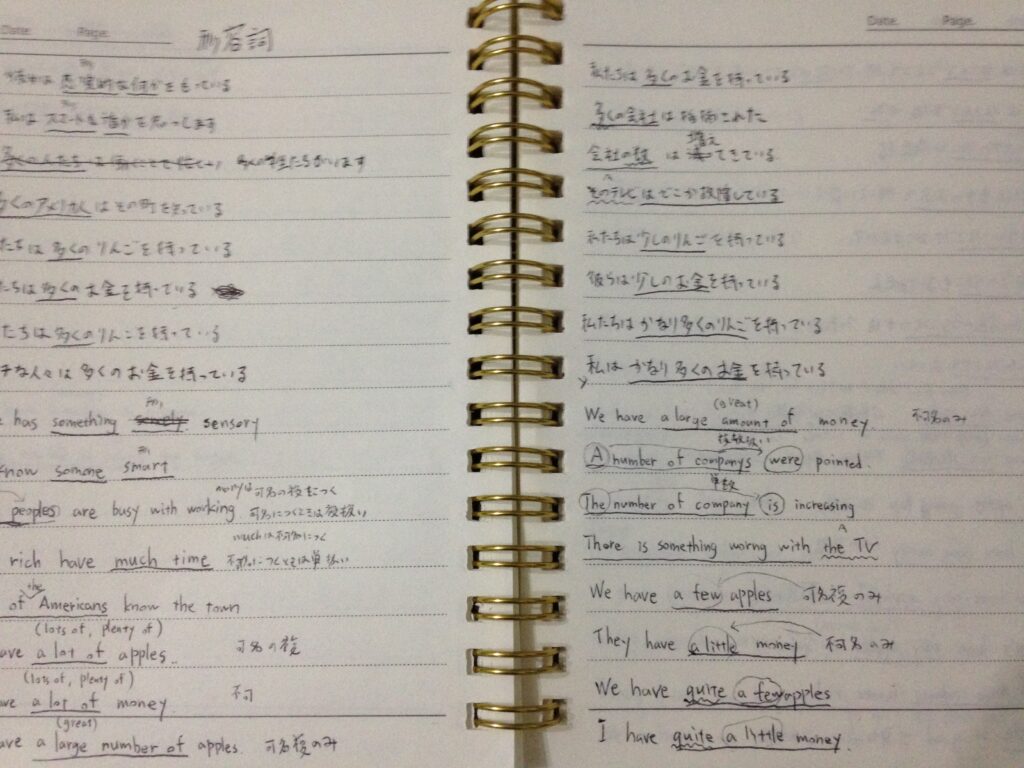 Date: Page:
形容詞
を持っている
私はスマートな誰かを
多くの学生たちがいます
多くのアメリカ人はその町を知っている
たちは多くのりんごを持っている
たちは多くのお金を持っている
たちは多くのりんごを持っている
な人々は多くのお金を持っている
has something sensory
know somone smart
manyは可名の複につく
peoples are busy with working 可名につくときは複扱い
muchは不可名につく
rich have much time
the
of Americans know the town
(lots of, plenty of)
ave a lot of apples. 可名の複
(lots of, plenty of)
ave a lot of money. 不可
(great)
ave a large number of apples. 可名複のみ
Date: Page:
私たちは多くのお金を持っている
多くの会社は指摘された
増え
会社の数は てきている
そのテレビはどこか故障している
私たちは少しのりんごを持っている
彼らは少しのお金を持っている
私たちはかなり多くのりんごを持っている
私はかなり多くのお金を持っている
(great)
We have a large amount of money. 不可名のみ
複数扱い
A number of companys were pointed.
単数
The number of company is increasing
There is something worng with the TV
We have a few apples 可名複のみ
They have a little money 不可名のみ
We have quite a few apples
I have quite a little money.